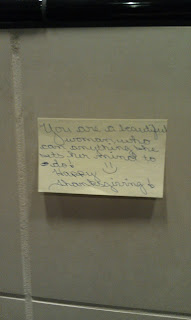 You are a beautiful
woman who
can anything she
sets her mind to
do!
Happy
Thanksgiving!